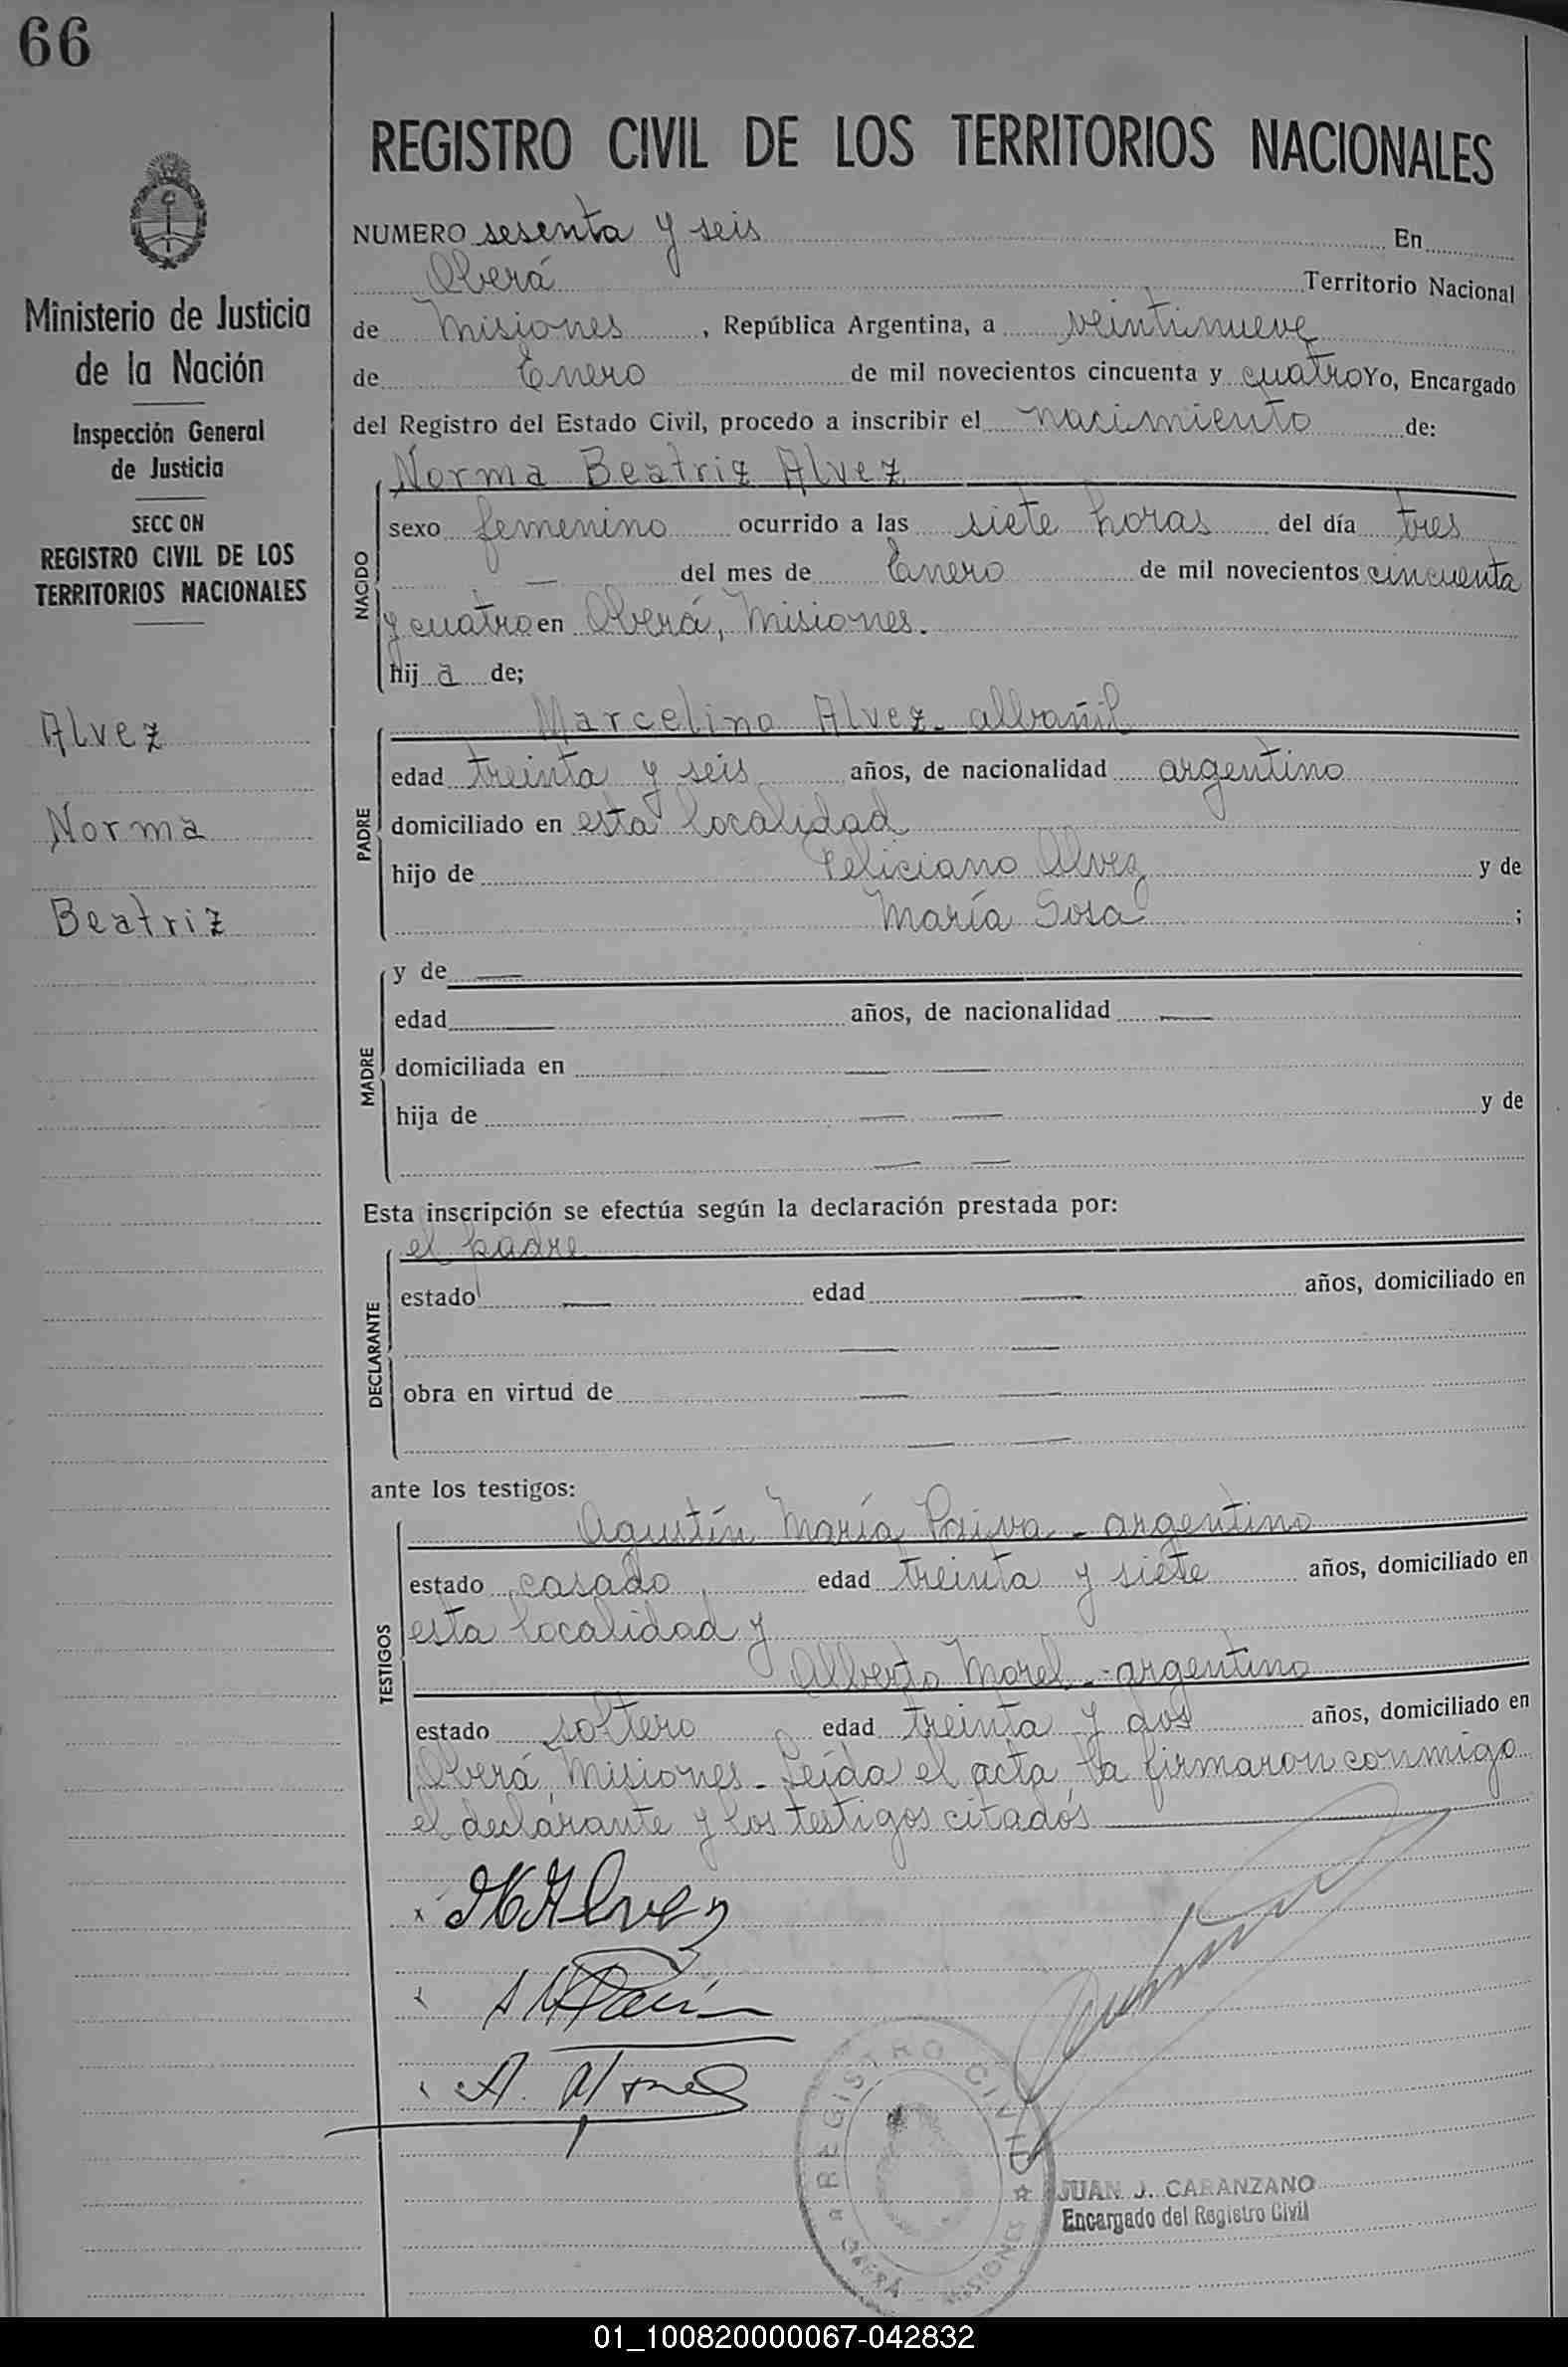 66
REGISTRO CIVIL DE LOS TERRITORIOS NACIONALES
Ministerio de Justicia
de la Nación
Inspección General
de Justicia
SECC ON
REGISTRO CIVIL DE LOS
TERRITORIOS NACIONALES
Alvez
Norma
Beatriz
NUMERO sesenta y seis En
Oberá Territorio Nacional
de Misiones, República Argentina, a veintinueve
de Enero de mil novecientos cincuenta y cuatro Yo, Encargado
del Registro del Estado Civil, procedo a inscribir el nacimiento de:
NACIDO
Norma Beatriz Alvez
sexo femenino ocurrido a las siete horas del día tres
— del mes de Enero de mil novecientos cincuenta
y cuatro en Oberá, Misiones.
hij a de;
PADRE
Marcelino Alvez - albañil
edad treinta y seis años, de nacionalidad argentino
domiciliado en esta localidad
hijo de Feliciano Alvez y de
María Sosa ;
MADRE
y de —
edad — años, de nacionalidad —
domiciliada en — —
hija de — — y de
— —
Esta inscripción se efectúa según la declaración prestada por:
DECLARANTE
el padre
estado — edad — años, domiciliado en
— —
obra en virtud de — —
— —
ante los testigos:
TESTIGOS
Agustín María Paiva - argentino
estado casado, edad treinta y siete años, domiciliado en
esta localidad y
Alberto Morel - argentino
estado soltero edad treinta y dos años, domiciliado en
Oberá, Misiones - Leída el acta, la firmaron conmigo
el declarante y los testigos citados
x M Alvez
A M Paiva
A. Morel
REGISTRO CIVIL
OBERÁ MISIONES
JUAN J. CARANZANO
Encargado del Registro Civil
01_100820000067-042832